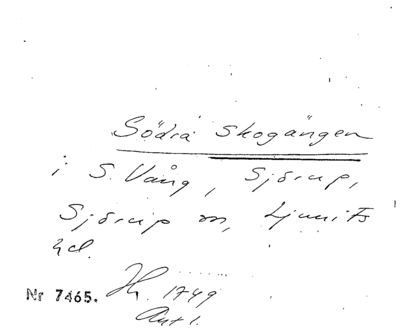 Södra skogången
i S. Vång, Sjörup,
Sjörup sn, Ljunits
hd.
Nr 7465. Jh. 1749
Akt 1.